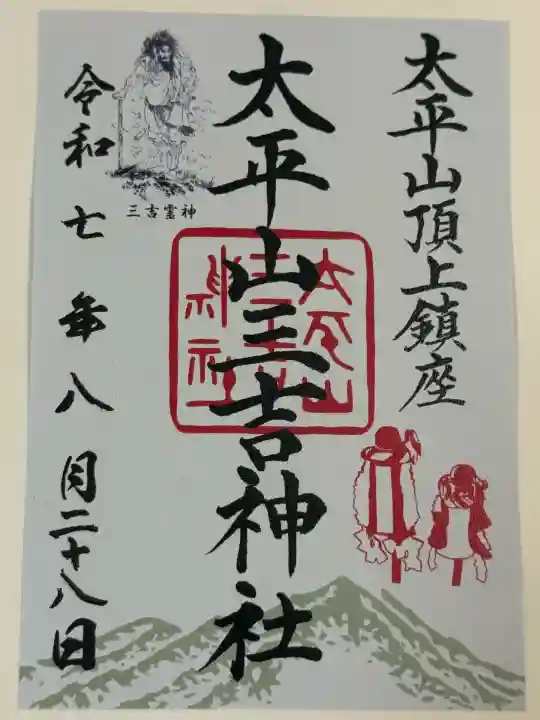 太平山頂上鎮座
太平山三吉神社
三吉霊神
令和七年八月二十八日